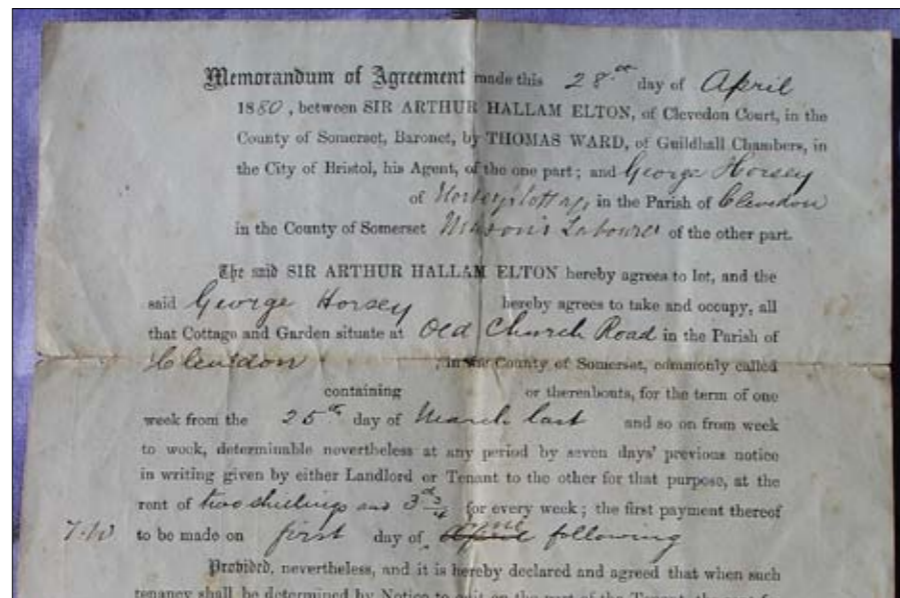 Memorandum of Agreement made this 28th day of April
1880, between SIR ARTHUR HALLAM ELTON, of Clevedon Court, in the
County of Somerset, Baronet, by THOMAS WARD, of Guildhall Chambers, in
the City of Bristol, his Agent, of the one part; and George Horsey
of in the Parish of Clevedon
in the County of Somerset Mason's Labourer of the other part.
The said SIR ARTHUR HALLAM ELTON hereby agrees to let, and the
said George Horsey hereby agrees to take and occupy, all
that Cottage and Garden situate at Old Church Road in the Parish of
Clevedon, in the County of Somerset, commonly called
containing or thereabouts, for the term of one
week from the 25th day of March last and so on from week
to week, determinable nevertheless at any period by seven days' previous notice
in writing given by either Landlord or Tenant to the other for that purpose, at the
rent of two shillings and 3d 3/4 for every week; the first payment thereof
T.W to be made on first day of following
Provided, nevertheless, and it is hereby declared and agreed that when such
tenancy shall be determined by Notice to quit on the part of the Tenant, the